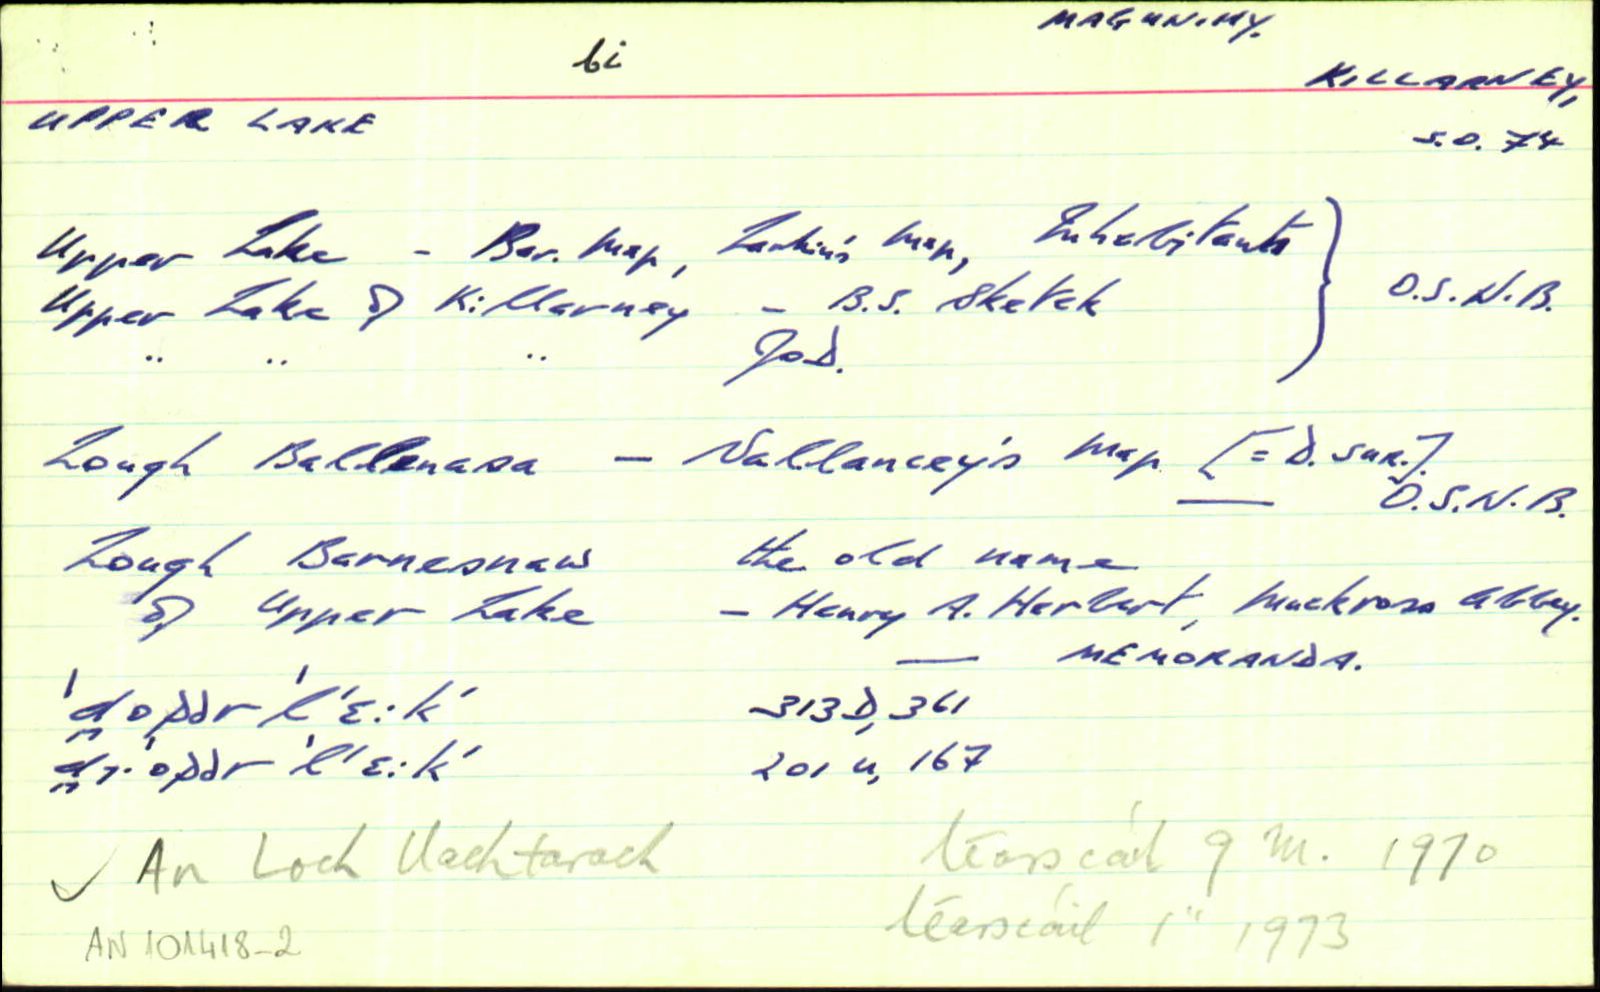 MAGUNIHY.
bi
KILLARNEY,
UPPER LAKE
S.O. 74
Upper Lake - Bar. Map, Larkin's Map, Inhabitants
Upper Lake of Killarney - B.S. Sketch
O.S.N.B.
" " " JOD.
Lough Ballenasa - Vallancey's Map [= D. Sur.].
O.S.N.B.
Lough Barnesnaw the old name
of Upper Lake - Henry A. Herbert, Muckross Abbey.
MEMORANDA.
ˈd̪opər ˈl′ɛ:k′ 313D, 361
201 u, 167
✓ An Loch Uachtarach léarscáil 9 M. 1970
léarscáil 1" 1973
AN 101418-2